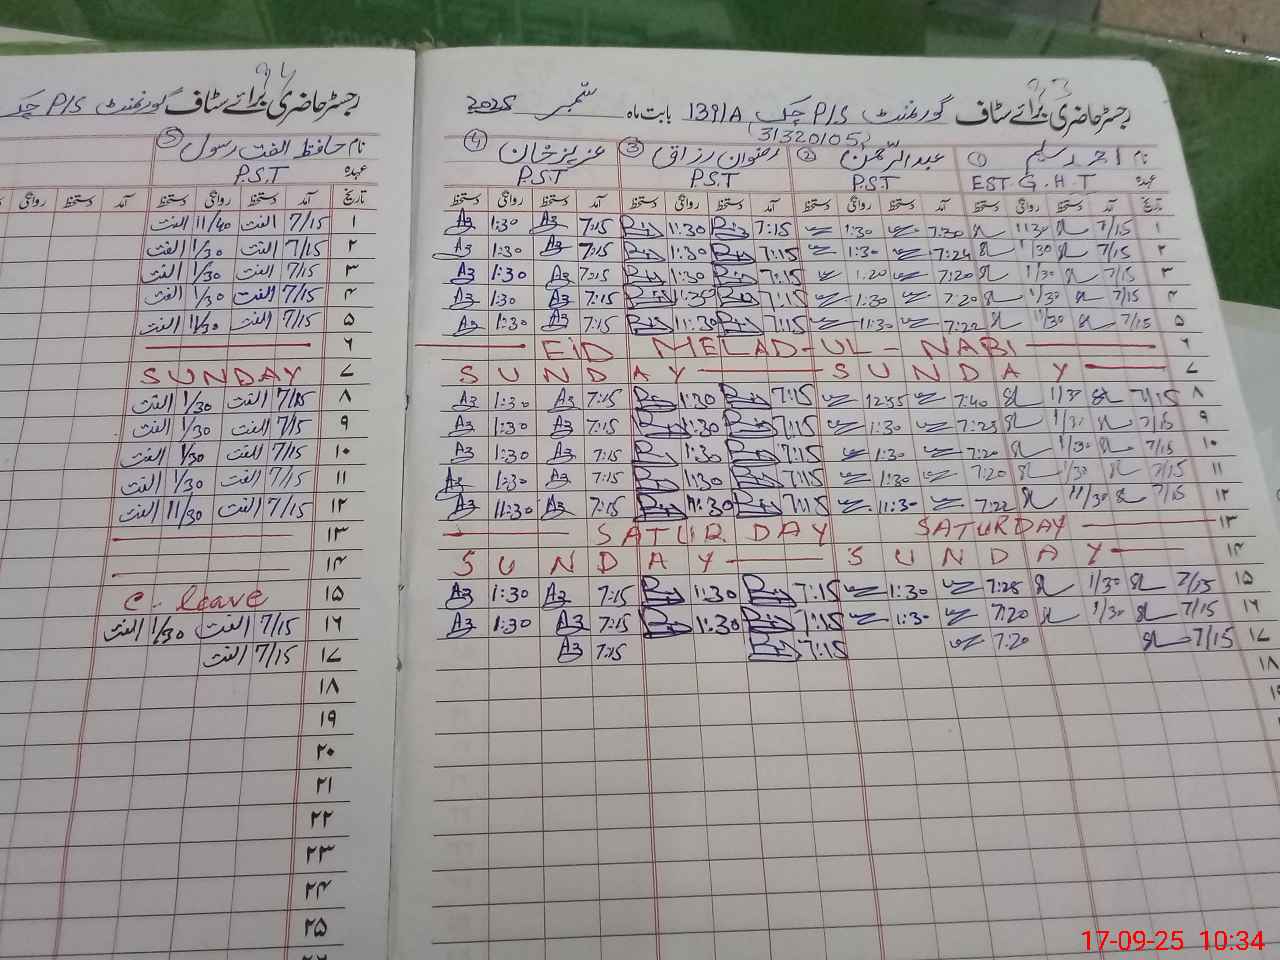 رجسٹر حاضری برائے سٹاف گورنمنٹ P/S چک 139/A بابت ماہ ستمبر 2025
(31320105)
نام احمد سلیم ① عبدالرحمٰن ② رضوان رزاق ③ عزیز خان ④
عہدہ EST. G.H.T P.S.T P.S.T P.S.T
تاریخ آمد دستخط روانگی دستخط آمد دستخط روانگی دستخط آمد دستخط روانگی دستخط آمد دستخط روانگی دستخط
۱ 7/15 11:30 7:20 1:30 7:15 11:30 7:15 1:30
۲ 7/15 1:30 7:24 1:30 7:15 1:30 7:15 1:30
۳ 7/15 1/30 7:20 1:20 7:15 1:30 7:15 1:30
۴ 7/15 1/30 7:20 1:30 7:15 7:15 1:30
۵ 7/15 11/30 7:22 11:30 7:15 11:30 7:15 1:30
۶ EID MELAD-UL-NABI
۷ SUNDAY SUNDAY
۸ 7/15 7:40 12:55 7:15 1:30 7:15 1:30
۹ 7/15 7:23 1:30 7:15 1:30 7:15 1:30
۱۰ 7/15 1/30 7:20 1:30 7:15 1:30 7:15 1:30
۱۱ 7/15 1/30 7:20 1:30 7:15 1:30 7:15 1:30
۱۲ 7/15 11/30 7:22 11:30 7:15 11:30 7:15 11:30
۱۳ SATURDAY SATURDAY
۱۴ SUNDAY SUNDAY
۱۵ 7/15 1/30 7:25 1:30 7:15 1:30 7:15 1:30
۱۶ 7/15 1/30 7:20 1:30 7:15 1:30 7:15 1:30
۱۷ 7/15 7:20 7:15 7:15
۱۸
رجسٹر حاضری برائے سٹاف گورنمنٹ P/S چک
نام حافظ الفت رسول ⑤
عہدہ P.S.T
تاریخ آمد دستخط روانگی دستخط آمد دستخط روانگی
۱ 7/15 الفت 11/40 الفت
۲ 7/15 الفت 1/30 الفت
۳ 7/15 الفت 1/30 الفت
۴ 7/15 الفت 1/30 الفت
۵ 7/15 الفت 11/30 الفت
۶
۷ SUNDAY
۸ 7/15 الفت 1/30 الفت
۹ 7/15 الفت 1/30 الفت
۱۰ 7/15 الفت 1/30 الفت
۱۱ 7/15 الفت 1/30 الفت
۱۲ 7/15 الفت 11/30 الفت
۱۳
۱۴
۱۵ C. leave
۱۶ 7/15 الفت 1/30 الفت
۱۷ 7/15 الفت
۱۸
۱۹
۲۰
۲۱
۲۲
۲۳
۲۴
۲۵
17-09-25 10:34